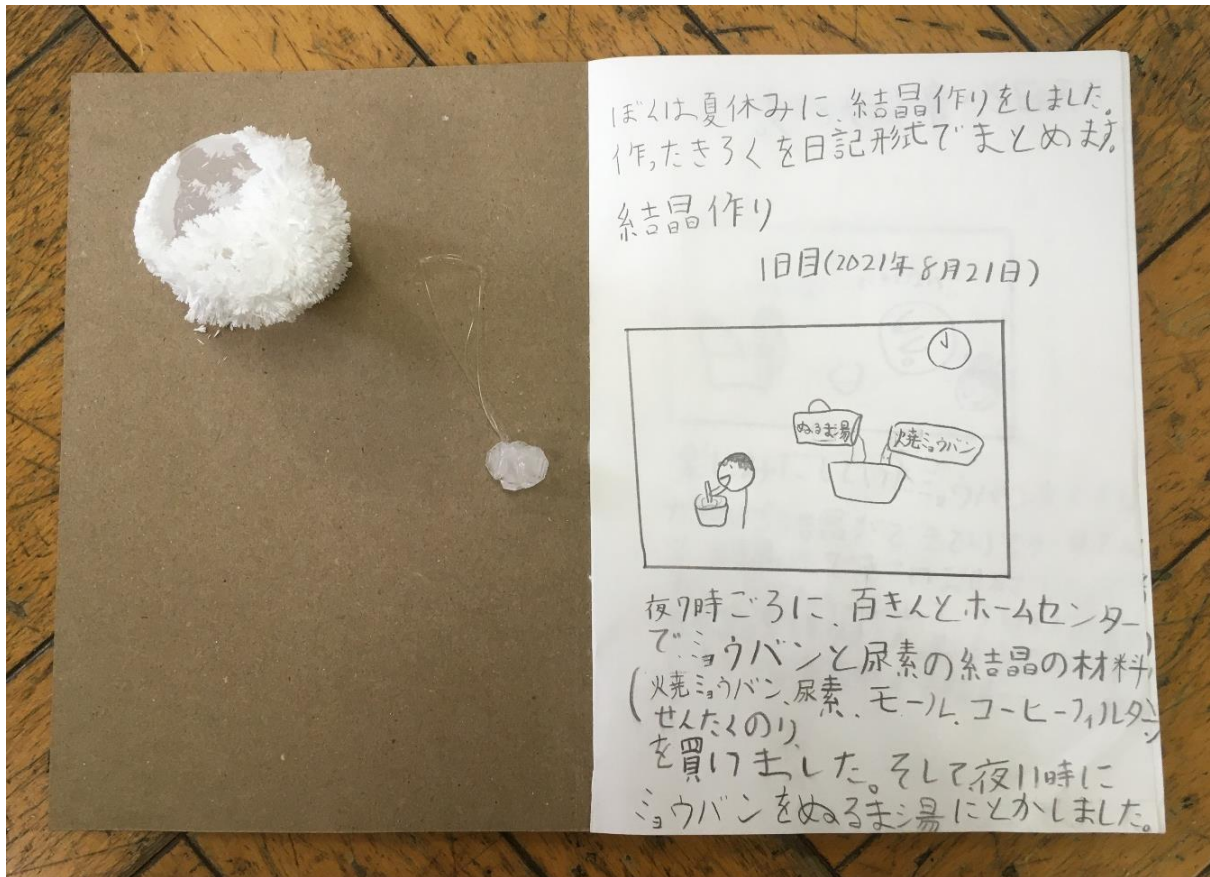 ぼくは夏休みに、結晶作りをしました。
作ったきろくを日記形式でまとめます。
結晶作り
1日目(2021年8月21日)
ぬるま湯
焼ミョウバン
夜7時ごろに、百きんとホームセンター
で、ミョウバンと尿素の結晶の材料
(焼ミョウバン、尿素、モール、コーヒーフィルター
せんたくのり)
を買いました。そして夜11時に
ミョウバンをぬるま湯にとかしました。